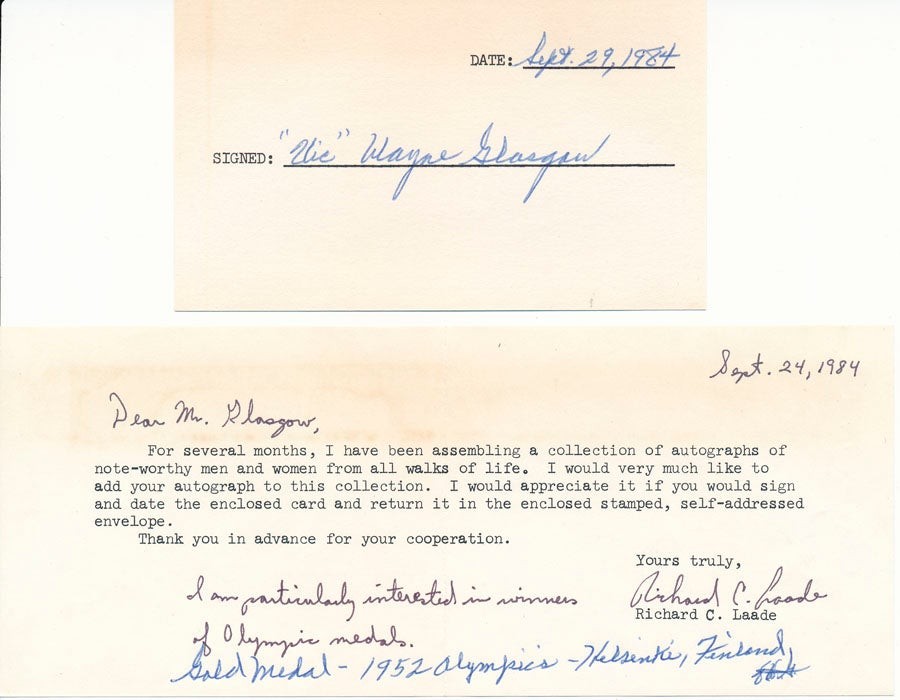 DATE: Sept. 29, 1984
SIGNED: "Vic" Wayne Glasgow
Sept. 24, 1984
Dear Mr. Glasgow,
For several months, I have been assembling a collection of autographs of
note-worthy men and women from all walks of life. I would very much like to
add your autograph to this collection. I would appreciate it if you would sign
and date the enclosed card and return it in the enclosed stamped, self-addressed
envelope.
Thank you in advance for your cooperation.
Yours truly,
Richard C. Laade
Richard C. Laade
I am particularly interested in winners
of Olympic medals.
Gold Medal - 1952 Olympics - Helsenki, Finland,